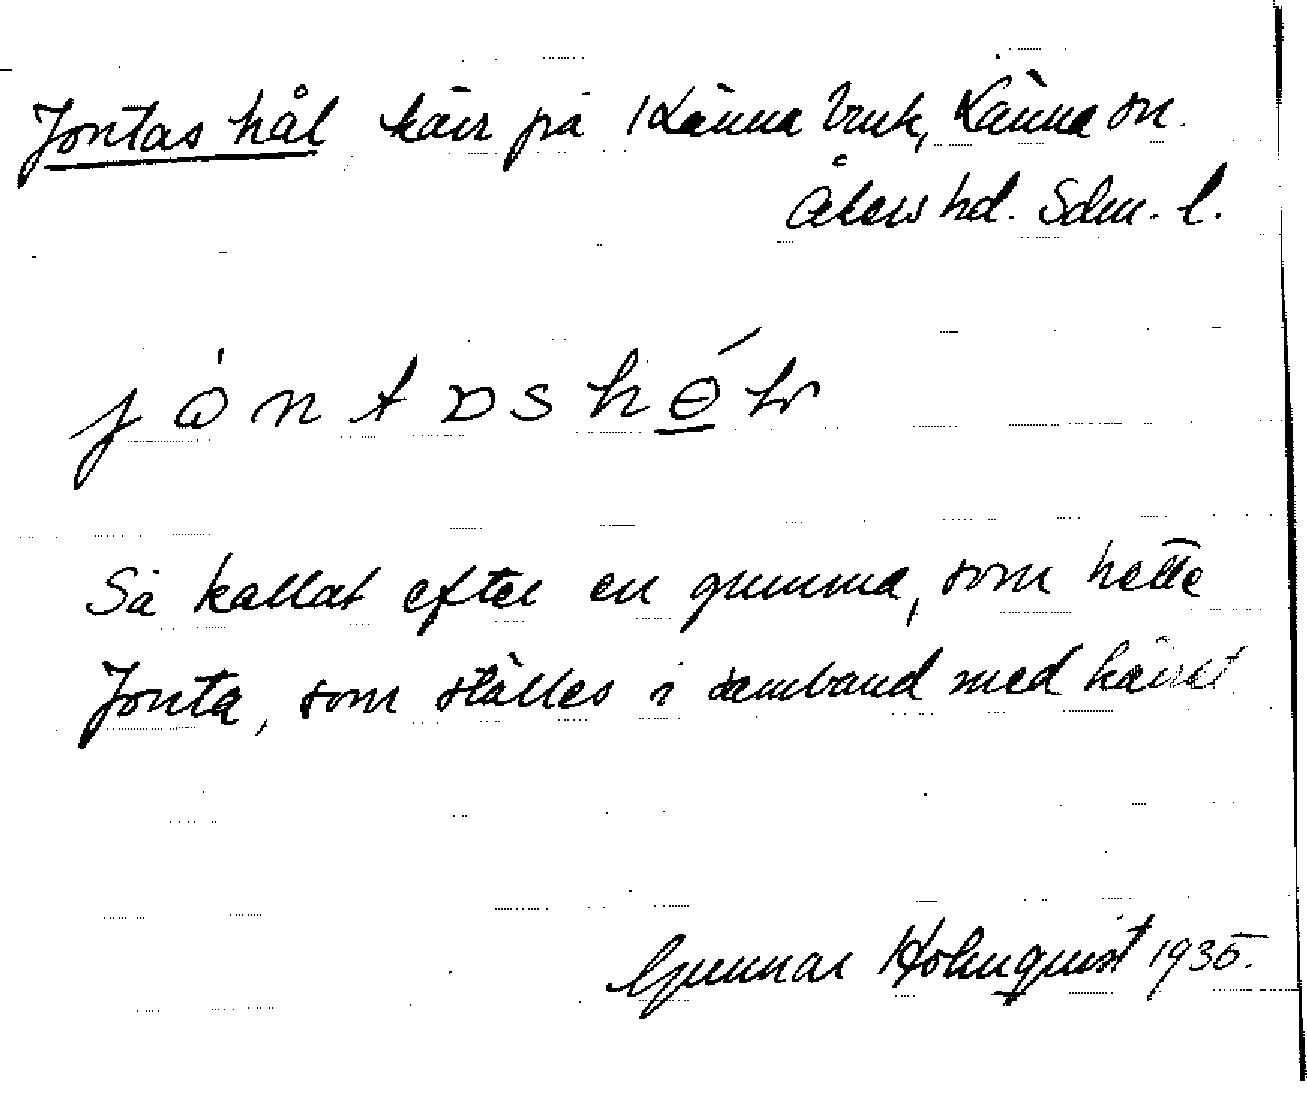 Jontas hål kärr på Länna bruk, Länna sn.
Åkers hd. Sdm. l.
Så kallat efter en gumma, som hette
Jonta, som ställes i samband med kärret
Gunnar Holmquist 1935.